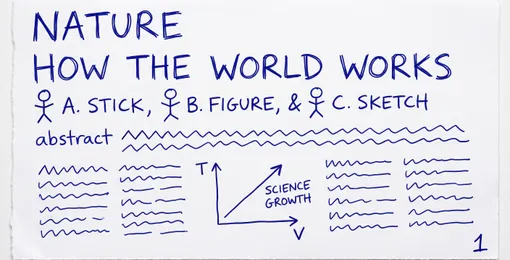 NATURE
HOW THE WORLD WORKS
A. STICK, B. FIGURE, & C. SKETCH
abstract
T
SCIENCE
GROWTH
V
1